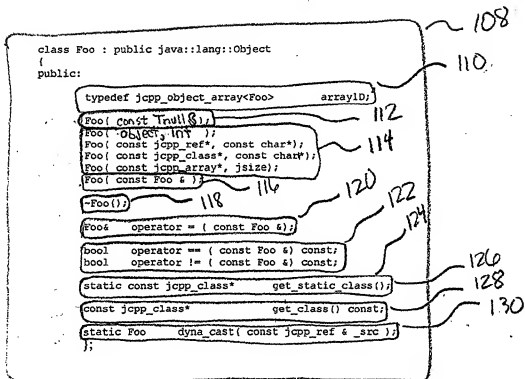 108
class Foo : public java::lang::Object
{
public:
110
typedef jcpp_object_array<Foo> array1D;
Foo( const Tnull&); 112
Foo( object, int );
Foo( const jcpp_ref*, const char*);
Foo( const jcpp_class*, const char*); 114
Foo( const jcpp_array*, jsize);
Foo( const Foo & ); 116
~Foo(); 118
120
Foo& operator = ( const Foo &);
122
bool operator == ( const Foo &) const;
bool operator != ( const Foo &) const;
124
static const jcpp_class* get_static_class();
126
const jcpp_class* get_class() const;
128
static Foo dyna_cast( const jcpp_ref & _src );
130
};